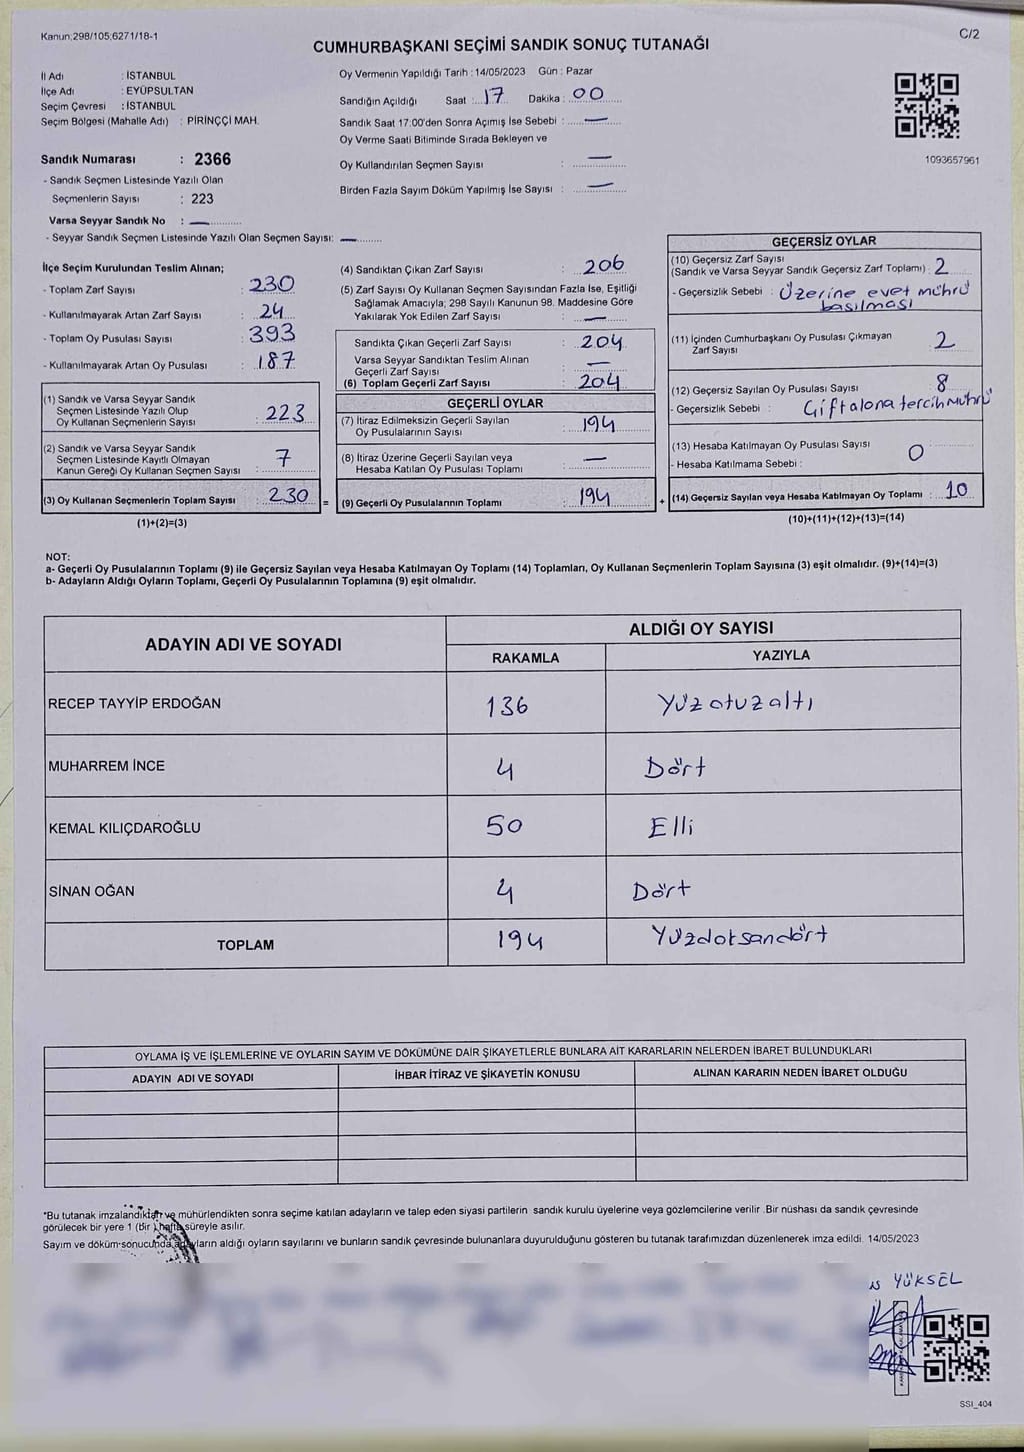 Kanun:298/105;6271/18-1
C/2
CUMHURBAŞKANI SEÇİMİ SANDIK SONUÇ TUTANAĞI
İl Adı : İSTANBUL
İlçe Adı : EYÜPSULTAN
Seçim Çevresi : İSTANBUL
Seçim Bölgesi (Mahalle Adı) : PİRİNÇÇİ MAH.
Oy Vermenin Yapıldığı Tarih : 14/05/2023 Gün : Pazar
Sandığın Açıldığı Saat : 17 Dakika : 00
Sandık Saat 17:00'den Sonra Açımış İse Sebebi : —
Oy Verme Saati Bitiminde Sırada Bekleyen ve
Oy Kullandırılan Seçmen Sayısı : —
Birden Fazla Sayım Döküm Yapılmış İse Sayısı : —
1093657961
Sandık Numarası : 2366
- Sandık Seçmen Listesinde Yazılı Olan
Seçmenlerin Sayısı : 223
Varsa Seyyar Sandık No : —
- Seyyar Sandık Seçmen Listesinde Yazılı Olan Seçmen Sayısı: —
İlçe Seçim Kurulundan Teslim Alınan;
- Toplam Zarf Sayısı : 230
- Kullanılmayarak Artan Zarf Sayısı : 24
- Toplam Oy Pusulası Sayısı : 393
- Kullanılmayarak Artan Oy Pusulası : 187
(1) Sandık ve Varsa Seyyar Sandık
Seçmen Listesinde Yazılı Olup
Oy Kullanan Seçmenlerin Sayısı : 223
(2) Sandık ve Varsa Seyyar Sandık
Seçmen Listesinde Kayıtlı Olmayan
Kanun Gereği Oy Kullanan Seçmen Sayısı : 7
(3) Oy Kullanan Seçmenlerin Toplam Sayısı : 230 =
(1)+(2)=(3)
(4) Sandıktan Çıkan Zarf Sayısı : 206
(5) Zarf Sayısı Oy Kullanan Seçmen Sayısından Fazla İse, Eşitliği
Sağlamak Amacıyla; 298 Sayılı Kanunun 98. Maddesine Göre
Yakılarak Yok Edilen Zarf Sayısı : —
Sandıkta Çıkan Geçerli Zarf Sayısı : 204
Varsa Seyyar Sandıktan Teslim Alınan
Geçerli Zarf Sayısı : —
(6) Toplam Geçerli Zarf Sayısı : 204
GEÇERLİ OYLAR
(7) İtiraz Edilmeksizin Geçerli Sayılan
Oy Pusulalarının Sayısı : 194
(8) İtiraz Üzerine Geçerli Sayılan veya
Hesaba Katılan Oy Pusulası Toplamı : —
(9) Geçerli Oy Pusulalarının Toplamı : 194 +
GEÇERSİZ OYLAR
(10) Geçersiz Zarf Sayısı
(Sandık ve Varsa Seyyar Sandık Geçersiz Zarf Toplamı) : 2
- Geçersizlik Sebebi : Üzerine evet mührü
basılması
(11) İçinden Cumhurbaşkanı Oy Pusulası Çıkmayan
Zarf Sayısı : 2
(12) Geçersiz Sayılan Oy Pusulası Sayısı : 8
- Geçersizlik Sebebi : Çift alana tercih mührü
(13) Hesaba Katılmayan Oy Pusulası Sayısı : 0
- Hesaba Katılmama Sebebi :
(14) Geçersiz Sayılan veya Hesaba Katılmayan Oy Toplamı : 10
(10)+(11)+(12)+(13)=(14)
NOT:
a- Geçerli Oy Pusulalarının Toplamı (9) ile Geçersiz Sayılan veya Hesaba Katılmayan Oy Toplamı (14) Toplamları, Oy Kullanan Seçmenlerin Toplam Sayısına (3) eşit olmalıdır. (9)+(14)=(3)
b- Adayların Aldığı Oyların Toplamı, Geçerli Oy Pusulalarının Toplamına (9) eşit olmalıdır.
ADAYIN ADI VE SOYADI
ALDIĞI OY SAYISI
RAKAMLA YAZIYLA
RECEP TAYYİP ERDOĞAN 136 Yüzotuzaltı
MUHARREM İNCE 4 Dört
KEMAL KILIÇDAROĞLU 50 Elli
SİNAN OĞAN 4 Dört
TOPLAM 194 Yüzdoksandört
OYLAMA İŞ VE İŞLEMLERİNE VE OYLARIN SAYIM VE DÖKÜMÜNE DAİR ŞİKAYETLERLE BUNLARA AİT KARARLARIN NELERDEN İBARET BULUNDUKLARI
ADAYIN ADI VE SOYADI İHBAR İTİRAZ VE ŞİKAYETİN KONUSU ALINAN KARARIN NEDEN İBARET OLDUĞU
*Bu tutanak imzalandıktan ve mühürlendikten sonra seçime katılan adayların ve talep eden siyasi partilerin sandık kurulu üyelerine veya gözlemcilerine verilir .Bir nüshası da sandık çevresinde
görülecek bir yere 1 (bir ) hafta süreyle asılır.
Sayım ve döküm sonucunda adayların aldığı oyların sayılarını ve bunların sandık çevresinde bulunanlara duyurulduğunu gösteren bu tutanak tarafımızdan düzenlenerek imza edildi. 14/05/2023
YÜKSEL
SSI_404